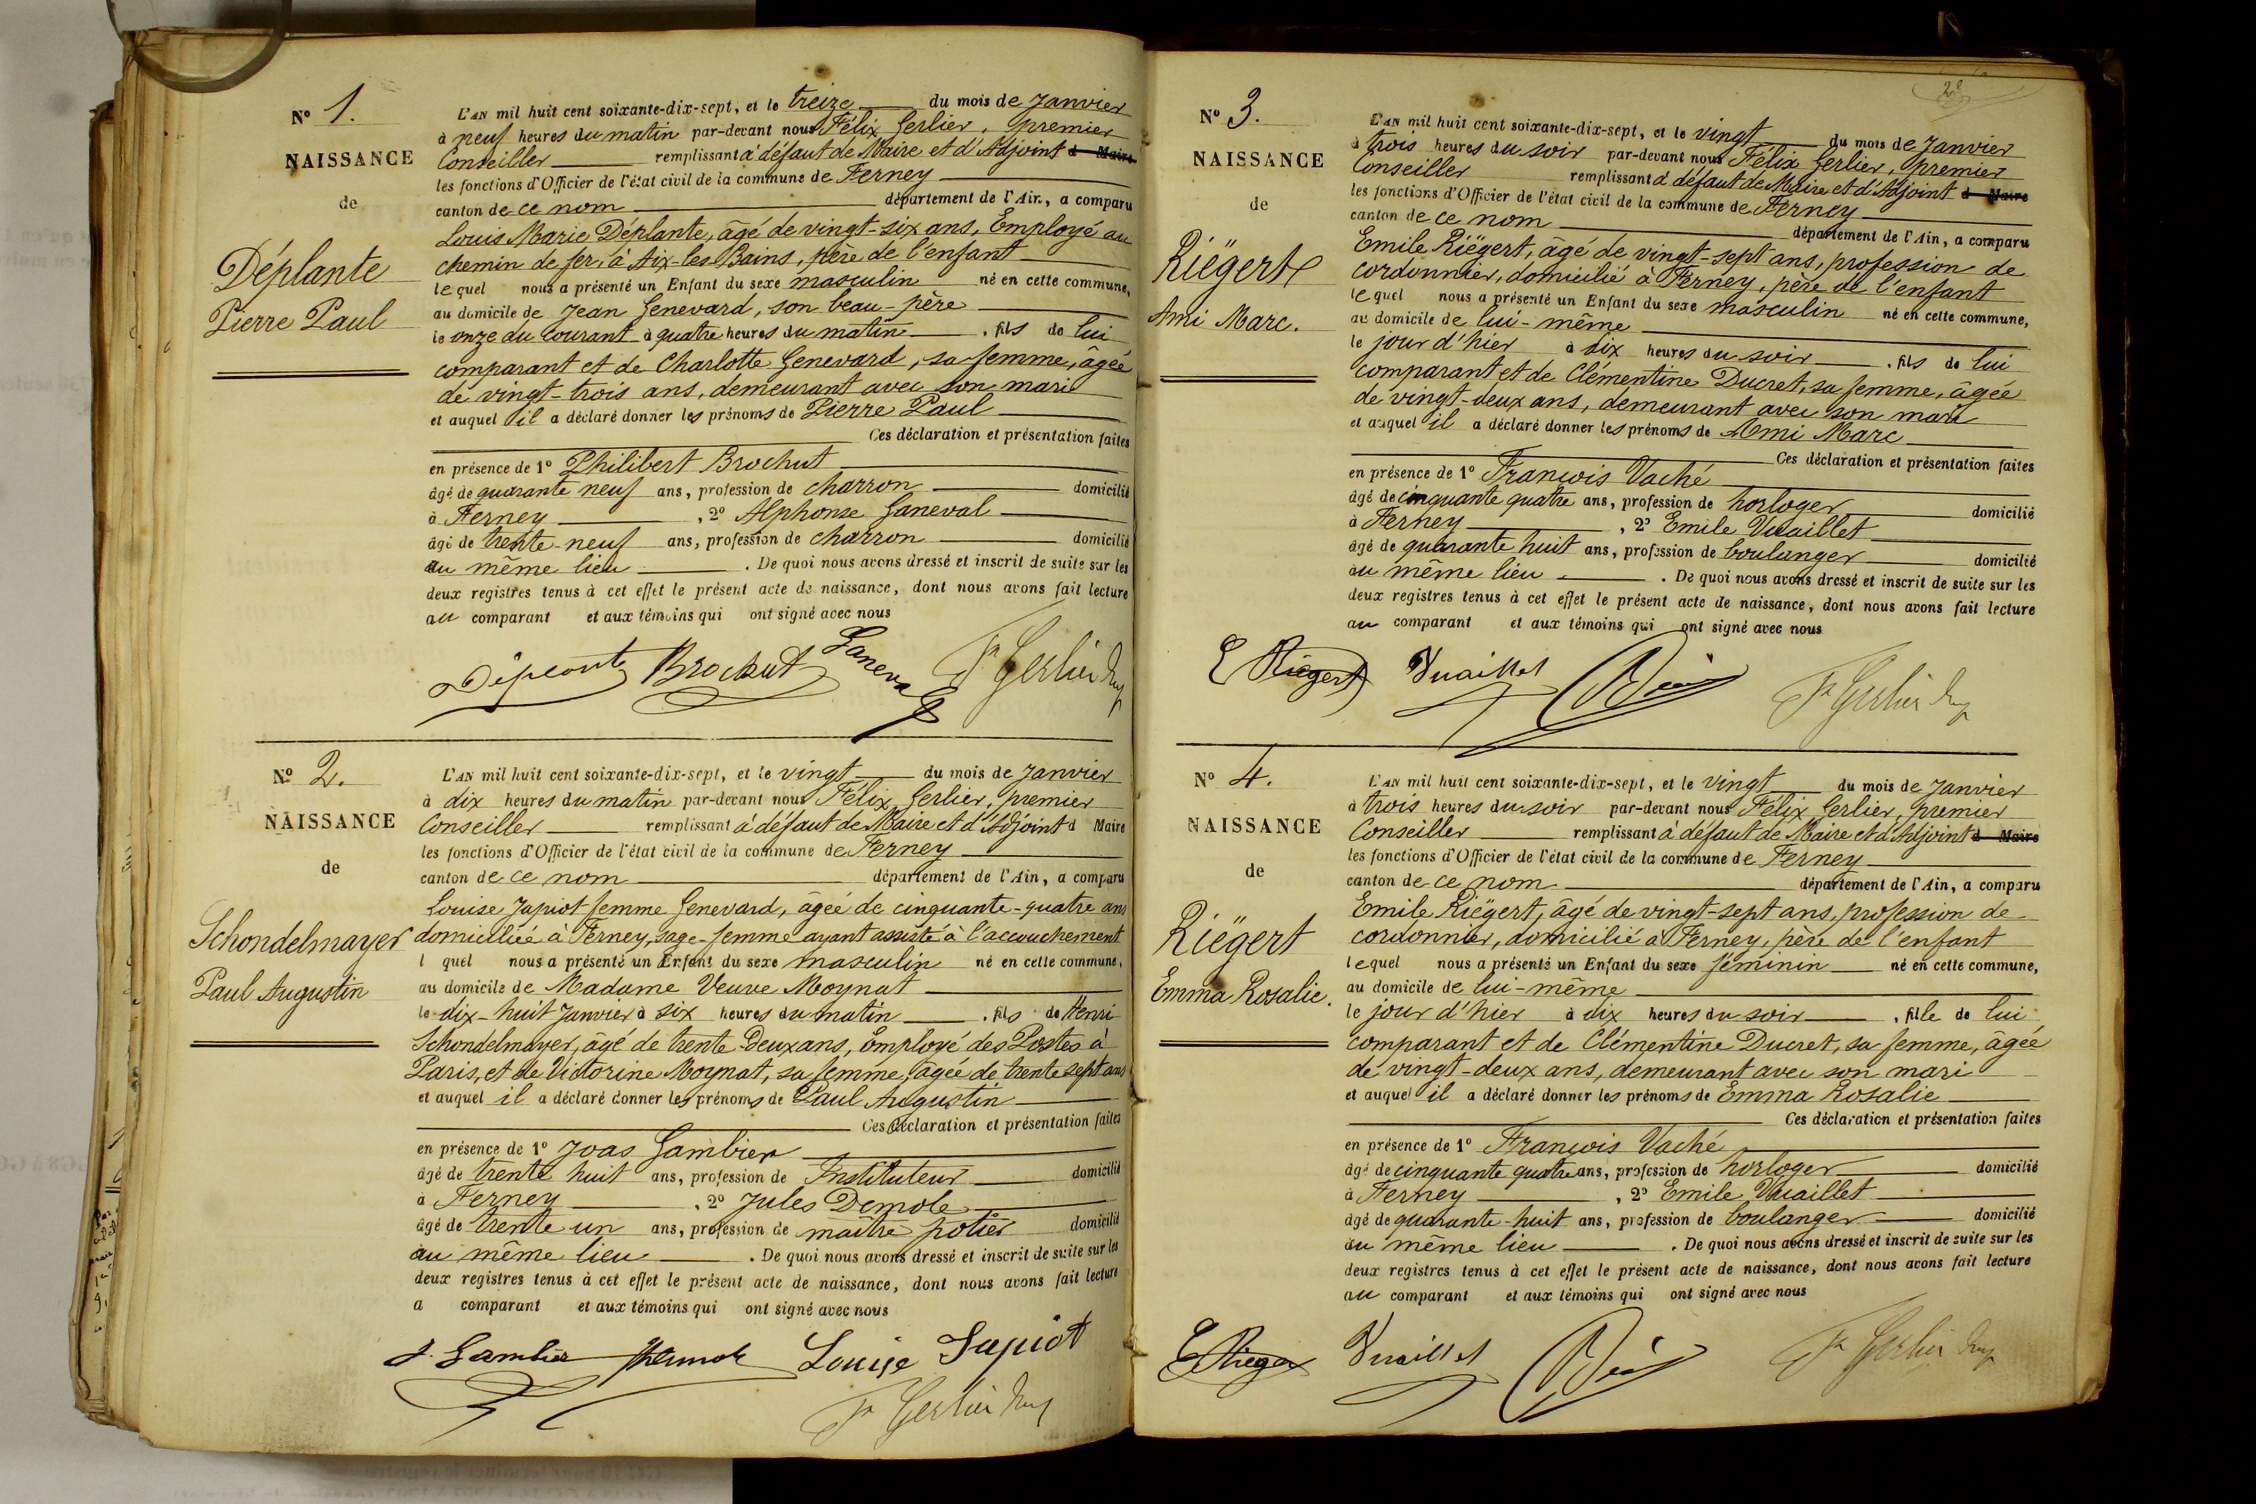 Nº 1.
NAISSANCE
de
Déplante
Pierre Paul
L'AN mil huit cent soixante-dix-sept, et le treize du mois de Janvier
à neuf heures du matin par-devant nous Félix Gerlier, premier
Conseiller remplissant à défaut de Maire et d'Adjoint d Maire
les fonctions d'Officier de l'état civil de la commune de Ferney
canton de ce nom département de l'Ain, a comparu
Louis Marie Déplante, âgé de vingt-six ans, Employé au
chemin de fer, à Aix-les-Bains, père de l'enfant
lequel nous a présenté un Enfant du sexe masculin né en cette commune,
au domicile de Jean Genevard, son beau-père
le onze du Courant à quatre heures du matin, fils de lui
comparant et de Charlotte Genevard, sa femme, âgée
de vingt-trois ans, demeurant avec son mari
et auquel il a déclaré donner les prénoms de Pierre Paul
Ces déclaration et présentation faites
en présence de 1º Philibert Brochut
âgé de quarante neuf ans, profession de charron domicilié
à Ferney, 2º Alphonse Ganeval
âgé de trente-neuf ans, profession de charron domicilié
au même lieu. De quoi nous avons dressé et inscrit de suite sur les
deux registres tenus à cet effet le présent acte de naissance, dont nous avons fait lecture
au comparant et aux témoins qui ont signé avec nous
Déplante Brochut Ganeval Fx Gerlier
Nº 2.
NAISSANCE
de
Schondelmayer
Paul Augustin
L'AN mil huit cent soixante-dix-sept, et le vingt du mois de Janvier
à dix heures du matin par-devant nous Félix Gerlier, premier
Conseiller remplissant à défaut de Maire et d'Adjoint d Maire
les fonctions d'Officier de l'état civil de la commune de Ferney
canton de ce nom département de l'Ain, a comparu
Louise Japiot femme Genevard, âgée de cinquante-quatre ans
domiciliée à Ferney, sage-femme ayant assisté à l'accouchement
l quel nous a présenté un Enfant du sexe masculin né en cette commune,
au domicile de Madame Veuve Moynat
le dix-huit Janvier à six heures du matin, fils de Henri
Schondelmayer, âgé de trente Deux ans, Employé des Postes à
Paris, et de Victorine Moynat, sa femme, âgée de trente sept ans
et auquel il a déclaré donner les prénoms de Paul Augustin
Ces déclaration et présentation faites
en présence de 1º Joas Gambier
âgé de trente huit ans, profession de Instituteur domicilié
à Ferney, 2º Jules Demole
âgé de trente un ans, profession de maître potier domicilié
au même lieu. De quoi nous avons dressé et inscrit de suite sur les
deux registres tenus à cet effet le présent acte de naissance, dont nous avons fait lecture
a comparant et aux témoins qui ont signé avec nous
J. Gambier Louise Japiot
Fx Gerlier
Nº 3.
NAISSANCE
de
Riëgert
Ami Marc.
L'AN mil huit cent soixante-dix-sept, et le vingt du mois de Janvier
à trois heures du soir par-devant nous Félix Gerlier, premier
Conseiller remplissant à défaut de Maire et d'Adjoint d Maire
les fonctions d'Officier de l'état civil de la commune de Ferney
canton de ce nom département de l'Ain, a comparu
Emile Riëgert, âgé de vingt-sept ans, profession de
cordonnier, domicilié à Ferney, père de l'enfant
lequel nous a présenté un Enfant du sexe masculin né en cette commune,
au domicile de lui-même
le jour d'hier à dix heures du soir, fils de lui
comparant et de Clémentine Ducret, sa femme, âgée
de vingt-deux ans, demeurant avec son mari
et auquel il a déclaré donner les prénoms de Ami Marc
Ces déclaration et présentation faites
en présence de 1º François Vaché
âgé de cinquante quatre ans, profession de horloger domicilié
à Ferney, 2º Emile Vuaillet
âgé de quarante huit ans, profession de boulanger domicilié
au même lieu. De quoi nous avons dressé et inscrit de suite sur les
deux registres tenus à cet effet le présent acte de naissance, dont nous avons fait lecture
au comparant et aux témoins qui ont signé avec nous
E Riëgert Vuaillet Fx Gerlier
Nº 4.
NAISSANCE
de
Riëgert
Emma Rosalie.
L'AN mil huit cent soixante-dix-sept, et le vingt du mois de Janvier
à trois heures du soir par-devant nous Félix Gerlier, premier
Conseiller remplissant à défaut de Maire et d'Adjoint d Maire
les fonctions d'Officier de l'état civil de la commune de Ferney
canton de ce nom département de l'Ain, a comparu
Emile Riëgert, âgé de vingt-sept ans, profession de
cordonnier, domicilié à Ferney, père de l'enfant
lequel nous a présenté un Enfant du sexe féminin né en cette commune,
au domicile de lui-même
le jour d'hier à dix heures du soir, fille de lui
comparant et de Clémentine Ducret, sa femme, âgée
de vingt-deux ans, demeurant avec son mari
et auquel il a déclaré donner les prénoms de Emma Rosalie
Ces déclaration et présentation faites
en présence de 1º François Vaché
âgé de cinquante quatre ans, profession de horloger domicilié
à Ferney, 2º Emile Vuaillet
âgé de quarante-huit ans, profession de boulanger domicilié
au même lieu. De quoi nous avons dressé et inscrit de suite sur les
deux registres tenus à cet effet le présent acte de naissance, dont nous avons fait lecture
au comparant et aux témoins qui ont signé avec nous
Vuaillet Fx Gerlier